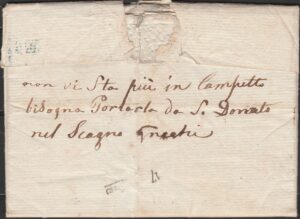 non vi Sta più in Campetto
bisogna Portarla da S. Donato
nel Scagno